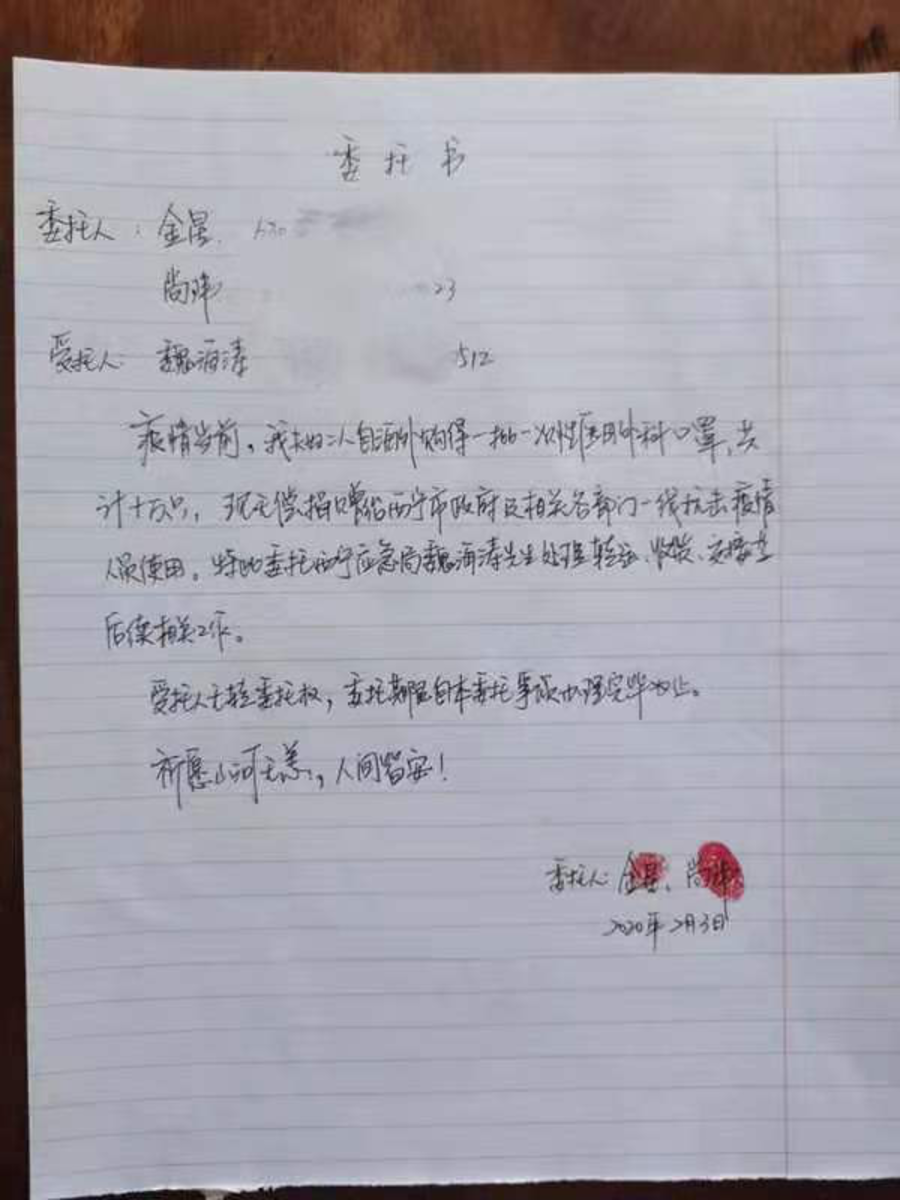 委托书
委托人：金星 630
尚玮 23
受托人：魏海涛 512
疫情当前，我夫妇二人自海外购得一批一次性医用外科口罩，共
计十万只，现无偿捐赠给西宁市政府及相关各部门一线抗击疫情
人员使用。特此委托西宁应急局魏海涛先生处理转运、收发、交接等
后续相关工作。
受托人无转委托权，委托期限自本委托事项办理完毕为止。
祈愿山河无恙，人间皆安！
委托人：金星、尚玮
2020年2月3日